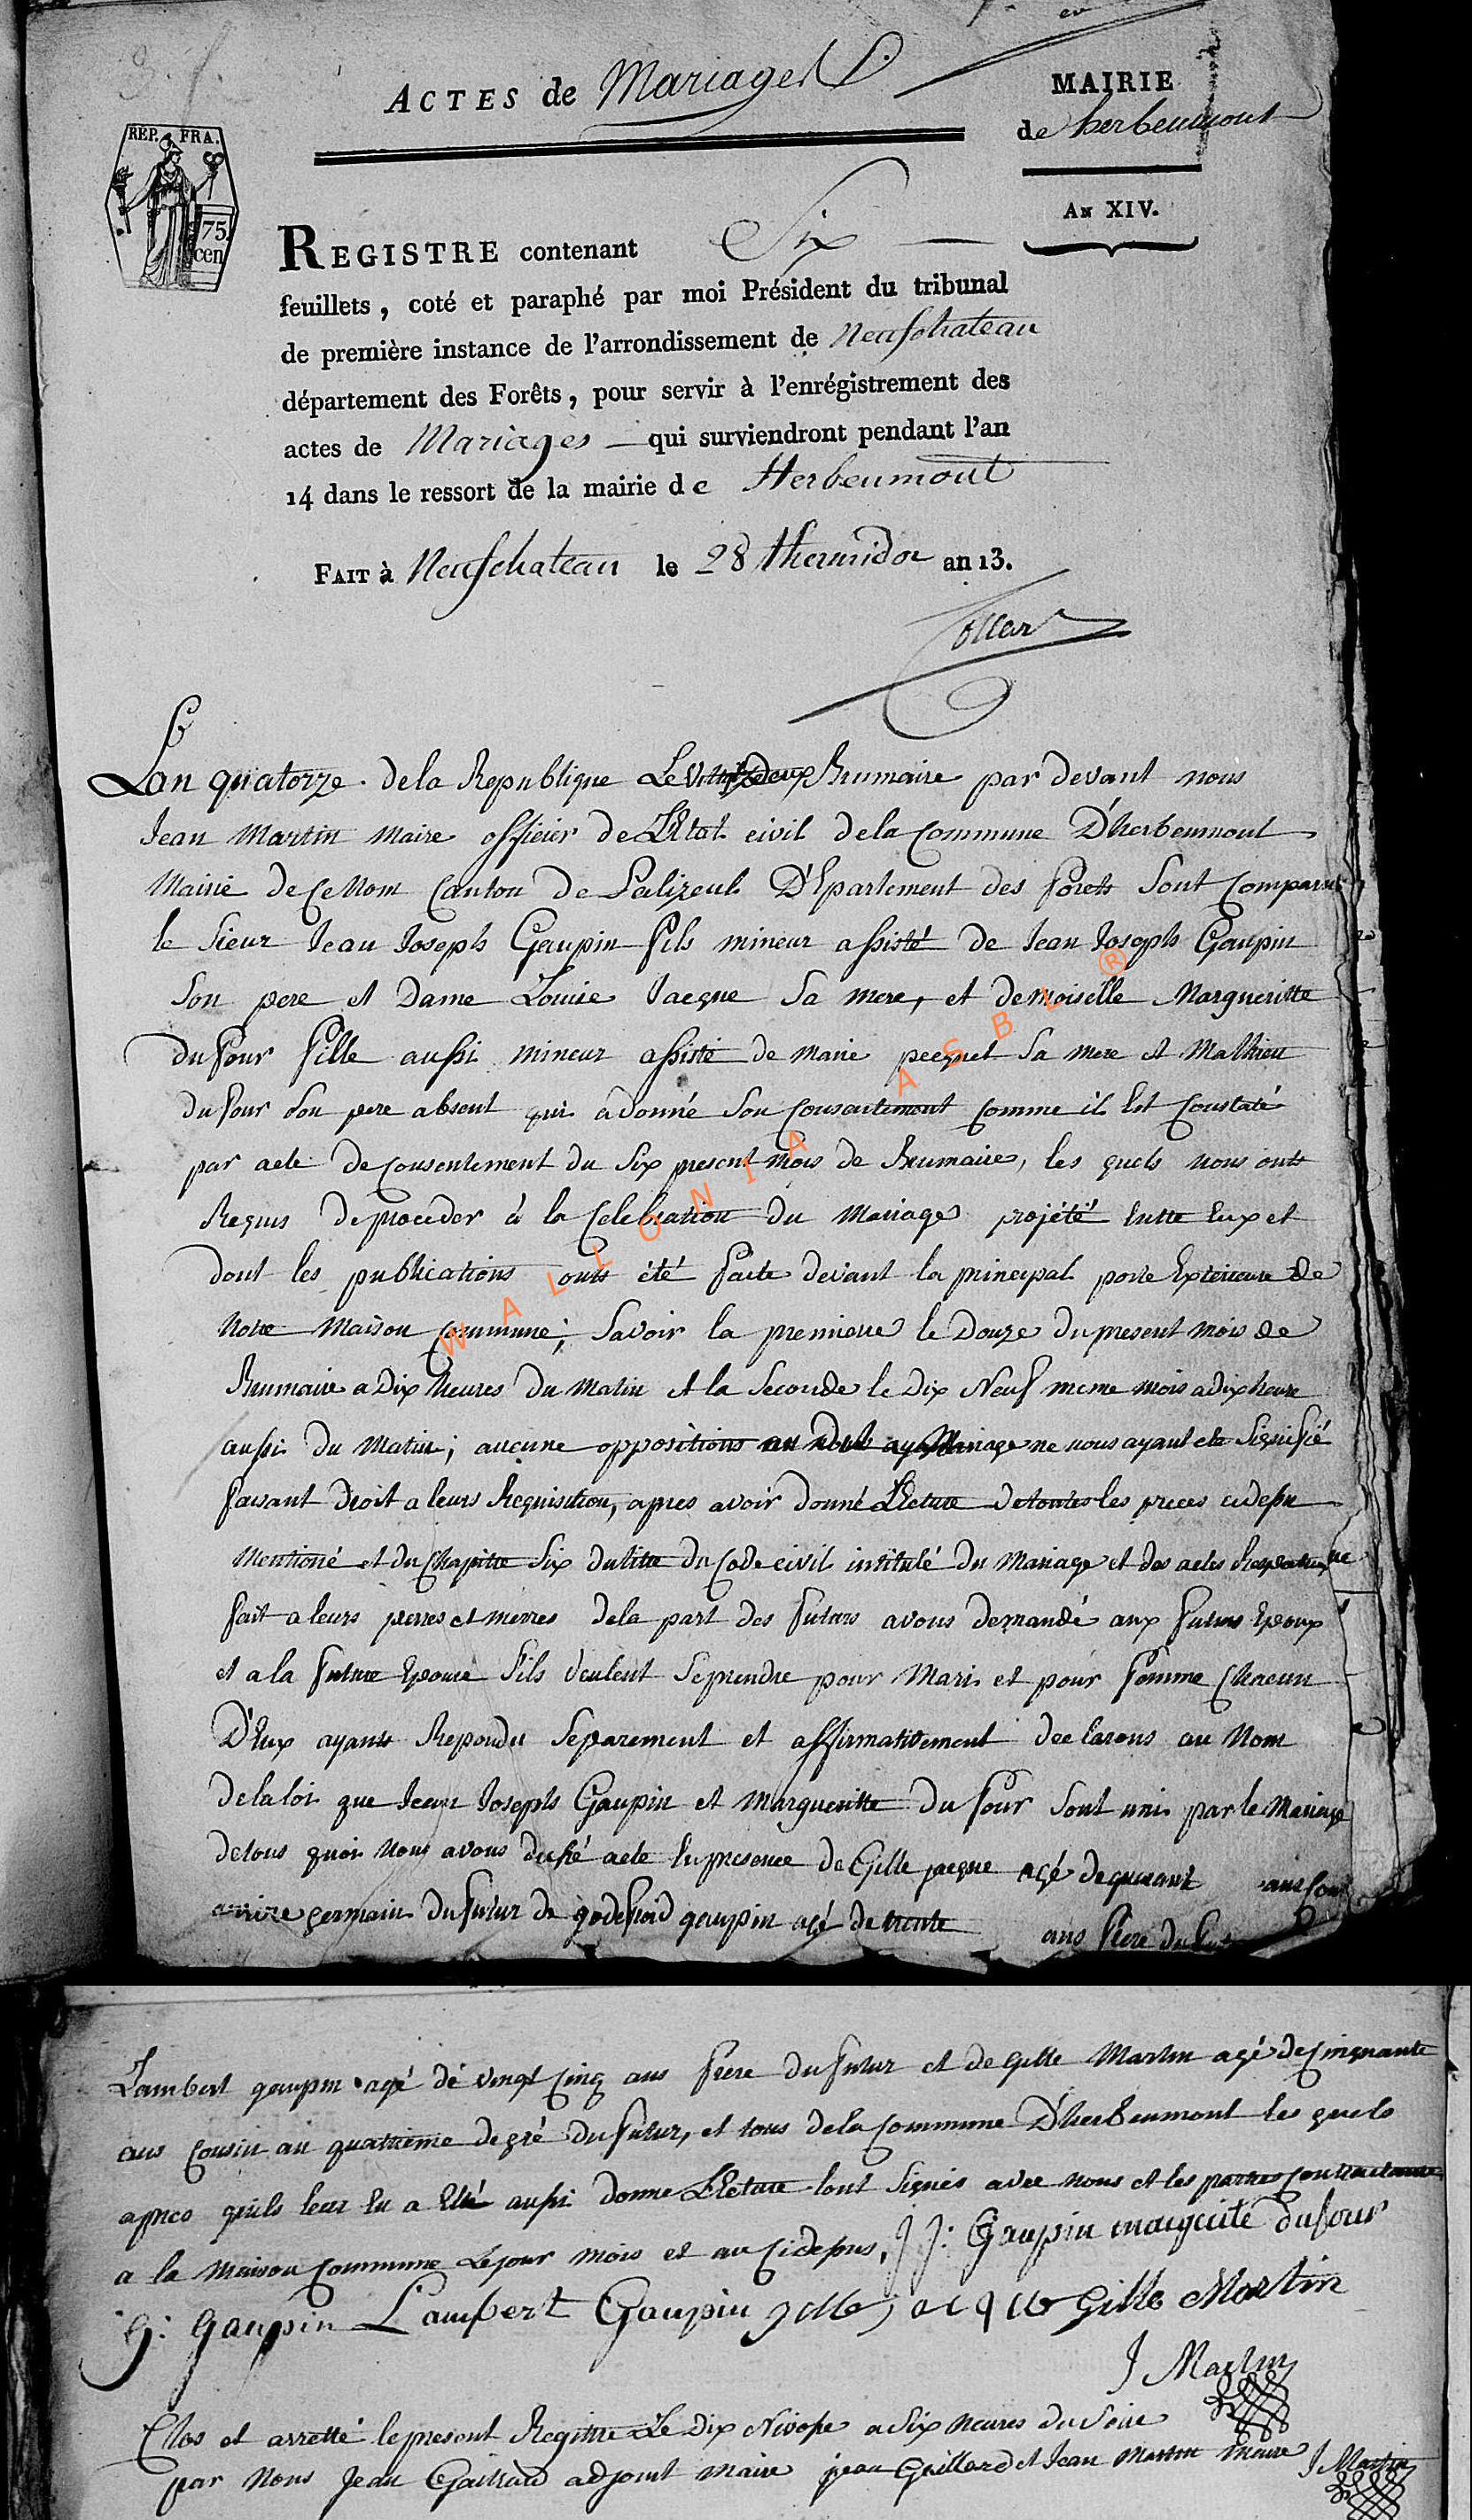 ACTES de Mariages
MAIRIE
de herbeumont
REP. FRA.
75
cen
AN XIV.
REGISTRE contenant Six
feuillets, coté et paraphé par moi Président du tribunal
de première instance de l'arrondissement de Neufchateau
département des Forêts, pour servir à l'enrégistrement des
actes de Mariages qui surviendront pendant l'an
14 dans le ressort de la mairie de Herbeumont
FAIT à Neufchateau le 28 thermidor an 13.
Collard
Lan quatorze dela Republique Le Vingt deux Brumaire par devant nous
Jean Martin Maire officier de L'Etat civil dela Commune D'herbeumont
Mairie de Ce Nom Canton de Palizeul D'Epartement des forets Sont Comparus
le Sieur Jean Joseph Gaupin fils mineur assisté de Jean Joseph Gaupin
Son pere et Dame Louise Jacque Sa mere, et demoiselle Margueritte
dufour fille aussi mineur assisté de Marie pecquet Sa mere et Mathieu
dufour son pere absent qui a donné Son Consentement Comme il Est Constaté
par acte de Consentement du Six present Mois de Brumaire, les quels nous onts
Requis de proceder à la Celebration du Mariage projété Entre Eux et
dont les publications onts été faite devant la principal porte Exterieure de
Notre Maison Commune; Savoir la premiere le Douze du present Mois de
Brumaire a Dix heures du Matin et la Seconde le Dix Neuf meme mois a dix heure
aussi du Matin; aucune oppositions au Mariage ne nous ayant ete Signifié
faisant Droit a leurs Requisition, apres avoir donné LEcture de toutes les pieces cidessu
Mentioné et du Chapitre Six du titre du Code civil intitulé du Mariage et des actes Respectueux
fait a leurs perres et merres dela part des futurs avons demandé aux futurs Epoux
et a la future Epouse S'ils Veulent Se prendre pour Mari et pour femme Chacun
D'Eux ayants Repondu Separement et affirmativement declarons au Nom
dela loi que Jean Joseph Gaupin et Margueritte du four Sont unis par le Mariage
de tous quoi Nous avons dressé acte En presence de Gille jacque agé de quarant ans Cousin
arrire germain du futur de godefroid gaupin agé de trente ans frere du futur
Lambert gaupin agé de vingt Cinq ans frere du futur et de Gille Martin agé de Cinquante
ans Cousin au quatrieme degré du futur, et tous dela Commune D'herbeumont les quels
apres qu'ils leur En a Eté aussi donne LEcture l'ont Signés avec nous et les parties Contractantes
a la Maison Commune Le jour mois et an Cidessus, J J: Gaupin marguite dufour
G: Gaupin Lambert Gaupin gille jacque Gille Martin
J Martin
Clos et arretté le present Registre Le Dix Nivose a Six heures du Soire
par Nous Jean Gailrard adjoint Maire jean Guillard et Jean Martin Maire J Martin
WALLONIA ASBL ®